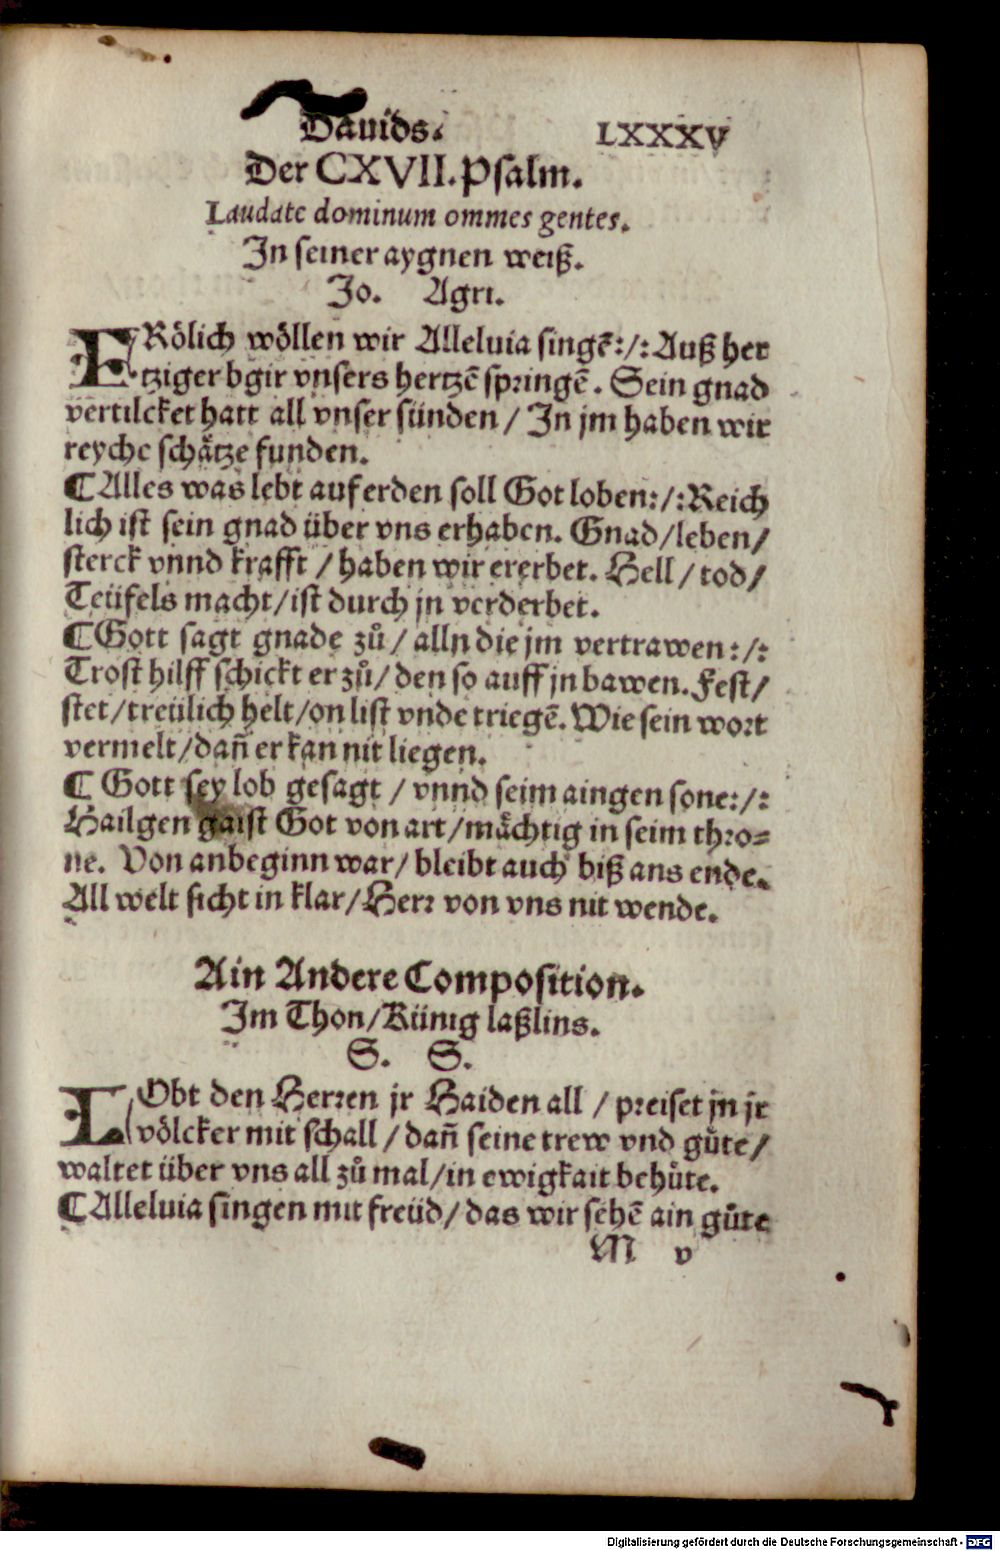 Dauids. LXXXV
Der CXVII. Psalm.
Laudate dominum ommes gentes.
In seiner aygnen weiß.
Jo. Agri.
FRölich wöllen wir Alleluia singē:/: Auß her
tziger bgir vnsers hertzē springē. Sein gnad
vertilcket hatt all vnser sünden / In jm haben wir
reyche schätze funden.
¶ Alles was lebt auf erden soll Got loben:/: Reich
lich ist sein gnad über vns erhaben. Gnad/leben/
sterck vnnd krafft / haben wir ererbet. Hell / tod/
Teüfels macht/ist durch jn verderbet.
¶ Gott sagt gnade zů / alln die jm vertrawen:/:
Trost hilff schickt er zů/ den so auff jn bawen. Fest/
stet/treülich helt/on list vnde triegē. Wie sein wort
vermelt/dañ er kan nit liegen.
¶ Gott sey lob gesagt / vnnd seim aingen sone:/:
Hailgen gaist Got von art/mächtig in seim thro=
ne. Von anbeginn war/ bleibt auch biß ans ende.
All welt sicht in klar/Herr von vns nit wende.
Ain Andere Composition.
Im Thon/Künig laßlins.
S. S.
LObt den Herren jr Haiden all / preiset jn jr
völcker mit schall / dañ seine trew vnd gůte/
waltet über vns all zů mal/in ewigkait behůte.
¶ Alleluia singen mit freüd/ das wir sehē ain gůte
M v
Digitalisierung gefördert durch die Deutsche Forschungsgemeinschaft - DFG